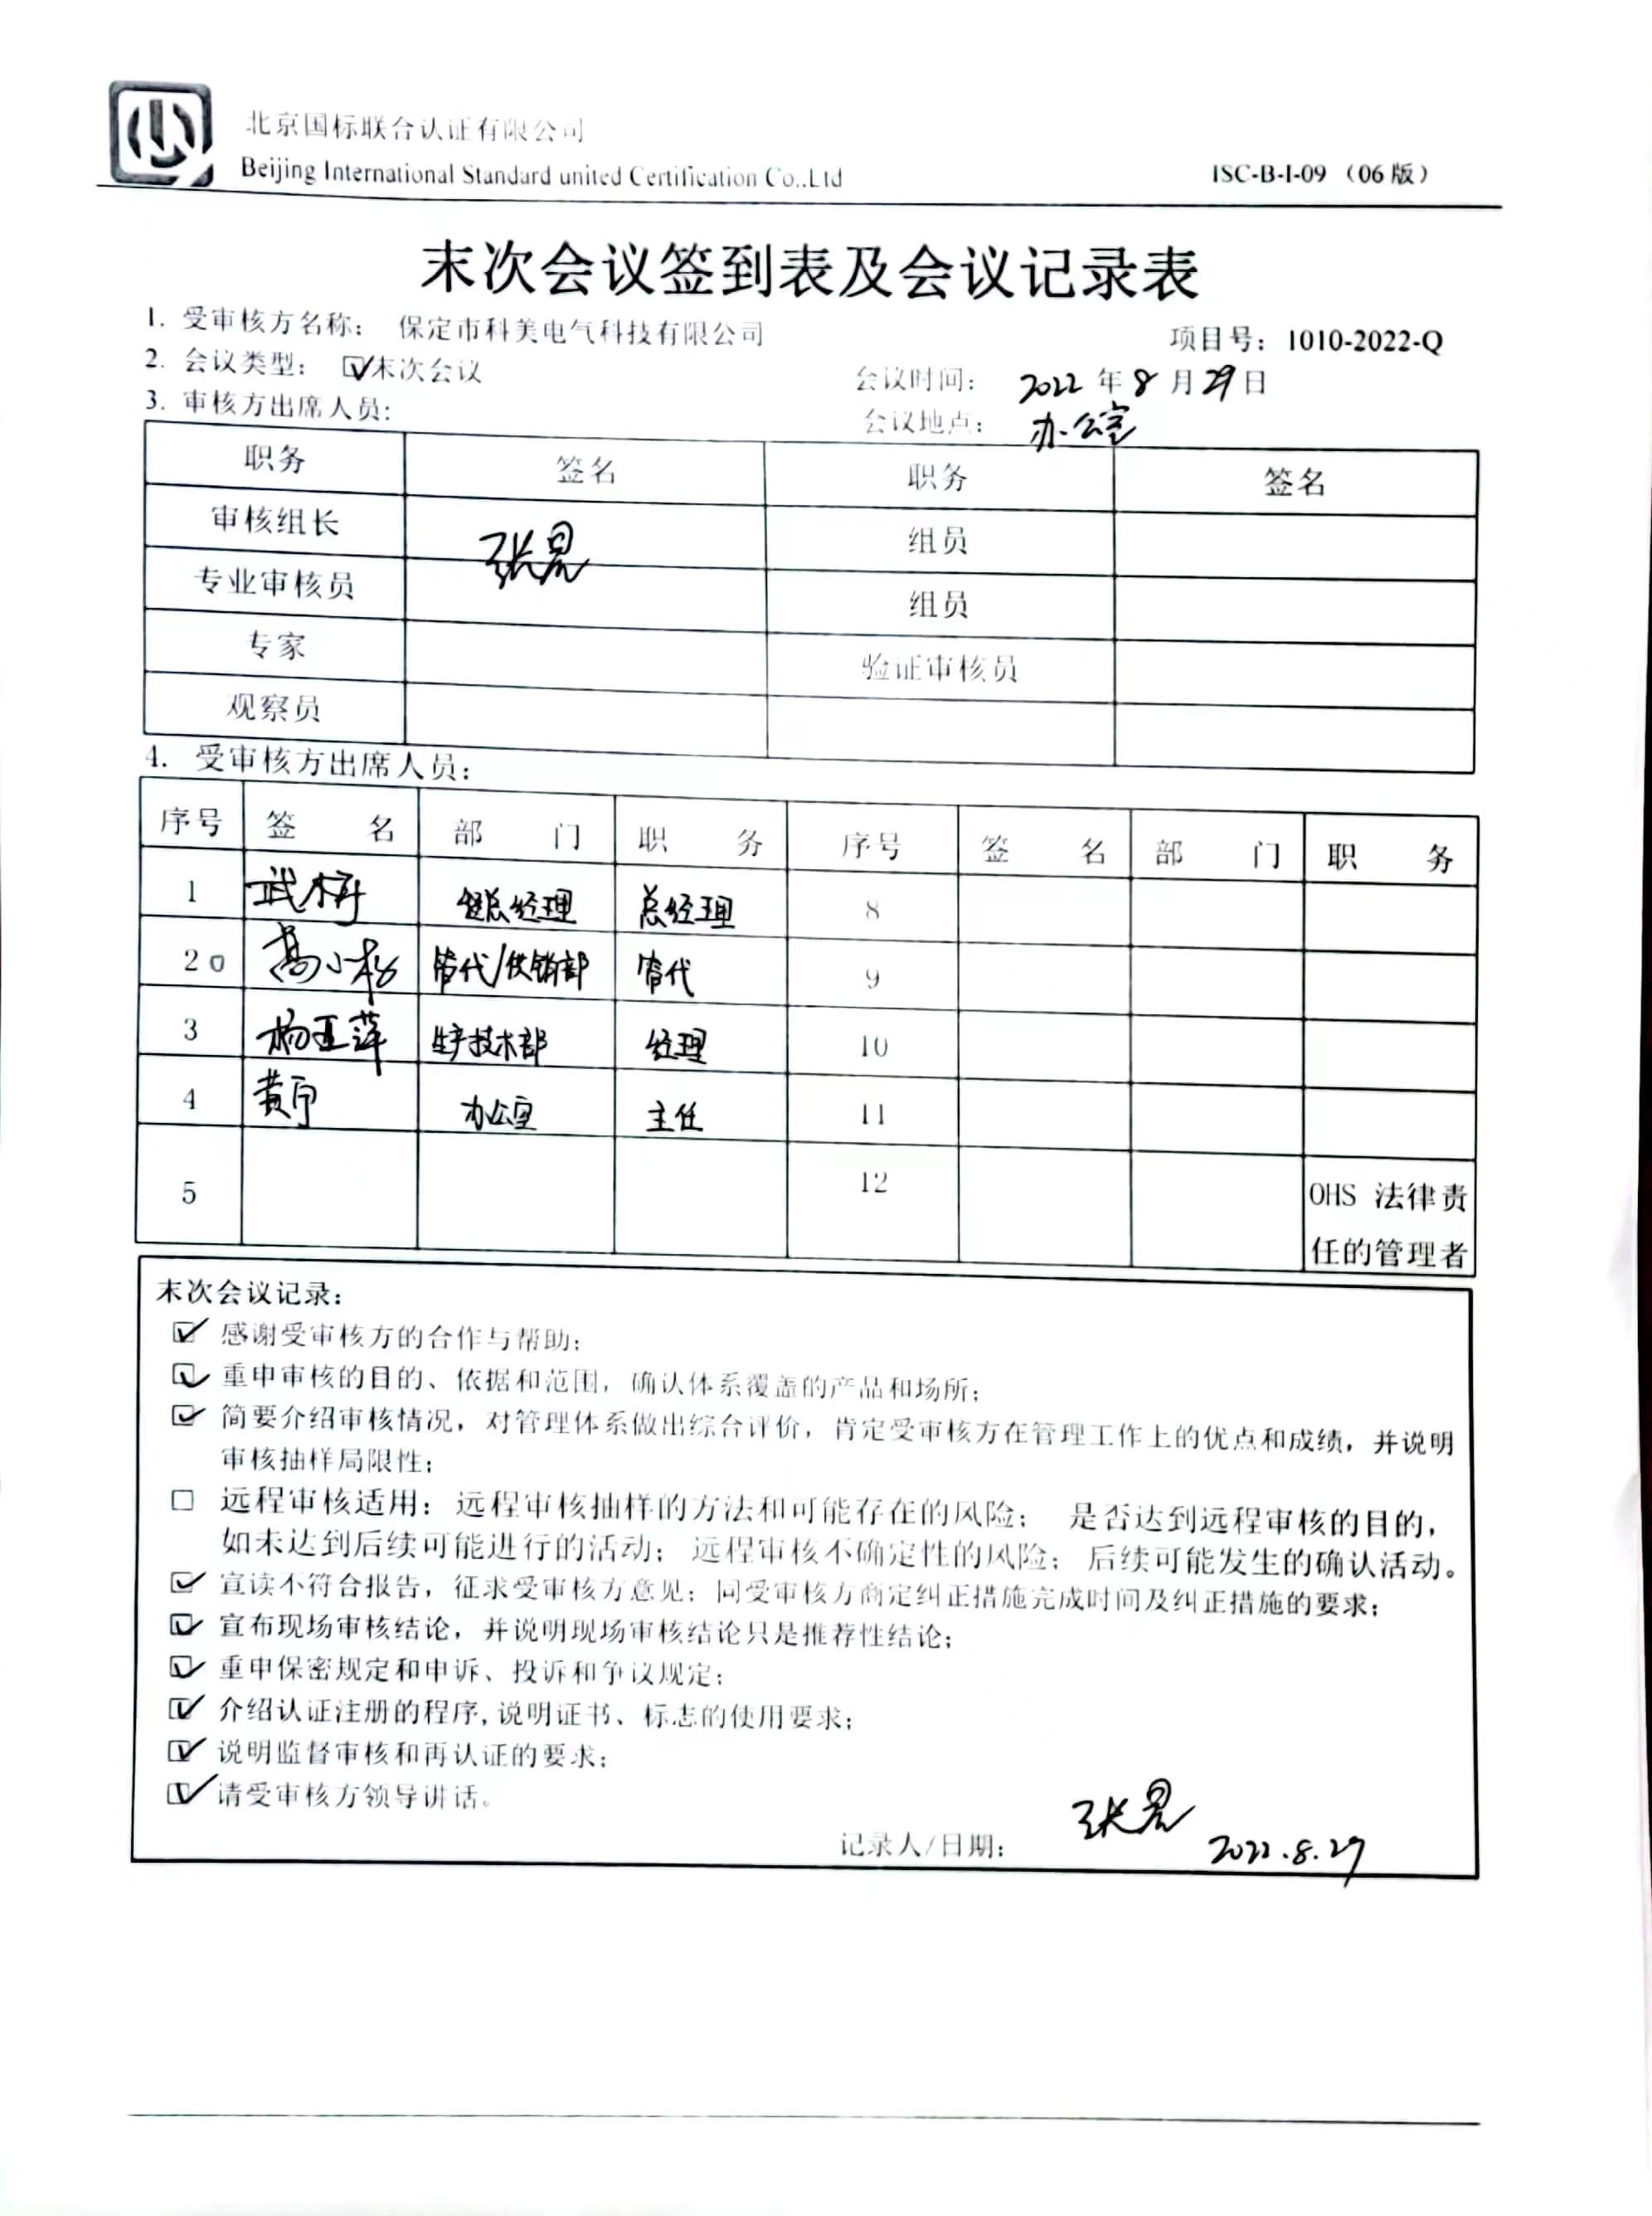 北京国标联合认证有限公司
Beijing International Standard united Certification Co.,Ltd
ISC-B-I-09（06 版）
末次会议签到表及会议记录表
1. 受审核方名称： 保定市科美电气科技有限公司
项目号：1010-2022-Q
2. 会议类型： ☑末次会议
会议时间： 2022 年 8 月 29 日
3. 审核方出席人员：
会议地点： 办公室
职务 签名 职务 签名
审核组长 张昊 组员
专业审核员 组员
专家 验证审核员
观察员
4. 受审核方出席人员：
序号 签 名 部 门 职 务 序号 签 名 部 门 职 务
1 总经理 总经理 8
2 高小松 管代/供销部 管代 9
3 杨亚萍 生产技术部 经理 10
4 黄宁 办公室 主任 11
5 12 OHS 法律责
任的管理者
末次会议记录：
☑ 感谢受审核方的合作与帮助；
☑ 重申审核的目的、依据和范围，确认体系覆盖的产品和场所；
☑ 简要介绍审核情况，对管理体系做出综合评价，肯定受审核方在管理工作上的优点和成绩，并说明
审核抽样局限性；
□ 远程审核适用：远程审核抽样的方法和可能存在的风险； 是否达到远程审核的目的，
如未达到后续可能进行的活动；远程审核不确定性的风险；后续可能发生的确认活动。
☑ 宣读不符合报告，征求受审核方意见；同受审核方商定纠正措施完成时间及纠正措施的要求；
☑ 宣布现场审核结论，并说明现场审核结论只是推荐性结论；
☑ 重申保密规定和申诉、投诉和争议规定；
☑ 介绍认证注册的程序,说明证书、标志的使用要求；
☑ 说明监督审核和再认证的要求；
☑ 请受审核方领导讲话。
记录人/日期： 张昊 2022.8.29